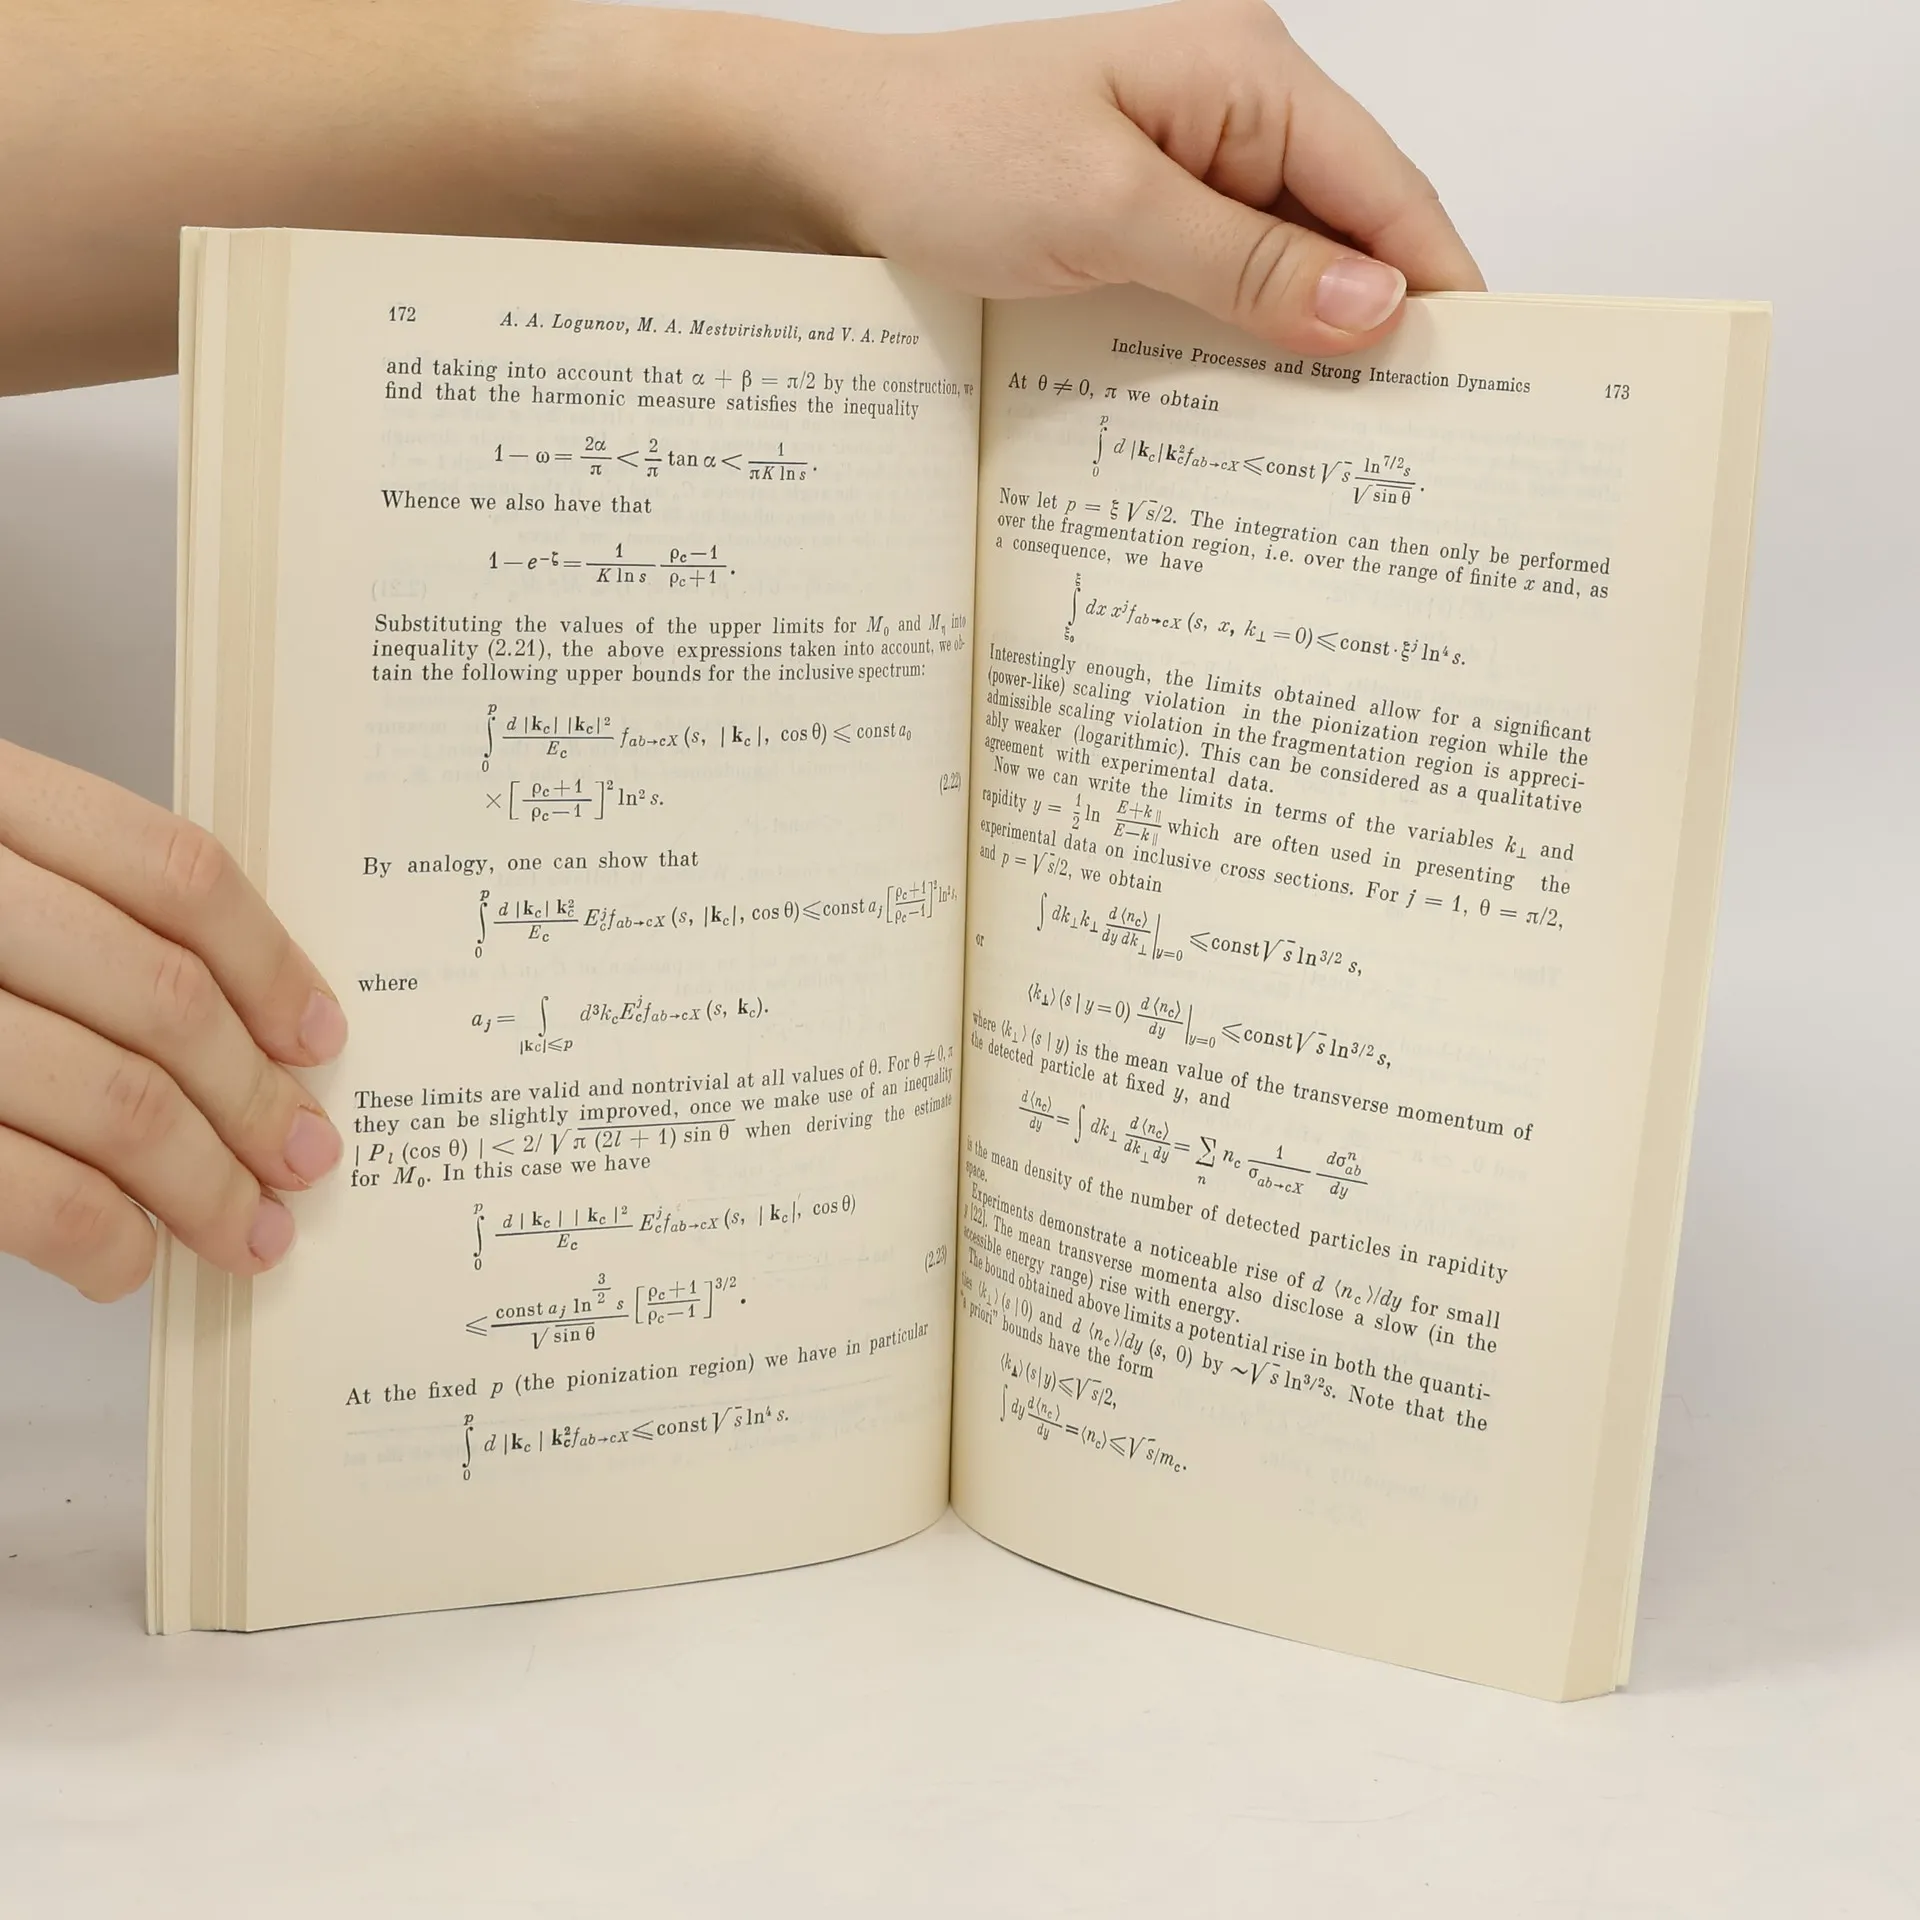 172
A. A. Logunov, M. A. Mestvirishvili, and V. A. Petrov
and taking into account that α + β = π/2 by the construction, we
find that the harmonic measure satisfies the inequality
1 − ω = 2α/π < 2/π tan α < 1/πK ln s.
Whence we also have that
1 − e^{−ζ} = 1/K ln s ρ_c−1/ρ_c+1.
Substituting the values of the upper limits for M₀ and M_η into
inequality (2.21), the above expressions taken into account, we ob-
tain the following upper bounds for the inclusive spectrum:
∫₀^p d |k_c| |k_c|²/E_c f_{ab→cX} (s, | k_c |, cos θ) ⩽ const a₀
× [ρ_c+1/ρ_c−1]² ln² s. (2.22)
By analogy, one can show that
∫₀^p d |k_c| k_c²/E_c E_c^j f_{ab→cX} (s, |k_c|, cos θ) ⩽ const a_j [ρ_c+1/ρ_c−1]² ln² s,
where
a_j = ∫_{|k_c|⩽p} d³k_c E_c^j f_{ab→cX} (s, k_c).
These limits are valid and nontrivial at all values of θ. For θ ≠ 0, π
they can be slightly improved, once we make use of an inequality
| P_l (cos θ) | < 2/√π (2l + 1) sin θ when deriving the estimate
for M₀. In this case we have
∫₀^p d | k_c | | k_c |²/E_c E_c^j f_{ab→cX} (s, | k_c |, cos θ)
⩽ const a_j ln^{3/2} s/√sin θ [ρ_c+1/ρ_c−1]^{3/2}. (2.23)
At the fixed p (the pionization region) we have in particular
∫₀^p d |k_c | k_c² f_{ab→cX} ⩽ const √s ln⁴ s.
Inclusive Processes and Strong Interaction Dynamics
173
At θ ≠ 0, π we obtain
∫₀^p d |k_c| k_c² f_{ab→cX} ⩽ const √s ln^{7/2} s/√sin θ.
Now let p = ξ √s/2. The integration can then only be performed
over the fragmentation region, i.e. over the range of finite x and, as
a consequence, we have
∫_{ξ₀}^ξ dx x^j f_{ab→cX} (s, x, k_⊥ = 0) ⩽ const · ξ^j ln⁴ s.
Interestingly enough, the limits obtained allow for a significant
(power-like) scaling violation in the pionization region while the
admissible scaling violation in the fragmentation region is appreci-
ably weaker (logarithmic). This can be considered as a qualitative
agreement with experimental data.
Now we can write the limits in terms of the variables k_⊥ and
rapidity y = 1/2 ln E+k_∥/E−k_∥ which are often used in presenting the
experimental data on inclusive cross sections. For j = 1, θ = π/2,
and p = √s/2, we obtain
∫ dk_⊥ k_⊥ d ⟨n_c⟩/dy dk_⊥ |_{y=0} ⩽ const √s ln^{3/2} s,
or
⟨k_⊥⟩ (s | y = 0) d ⟨n_c⟩/dy |_{y=0} ⩽ const √s ln^{3/2} s,
where ⟨k_⊥⟩ (s | y) is the mean value of the transverse momentum of
the detected particle at fixed y, and
d ⟨n_c⟩/dy = ∫ dk_⊥ d ⟨n_c⟩/dk_⊥ dy = Σ_n n_c 1/σ_{ab→cX} dσ^n_{ab}/dy
is the mean density of the number of detected particles in rapidity
space.
Experiments demonstrate a noticeable rise of d ⟨n_c⟩/dy for small
y [22]. The mean transverse momenta also disclose a slow (in the
accessible energy range) rise with energy.
The bound obtained above limits a potential rise in both the quanti-
ties ⟨k_⊥⟩ (s | 0) and d ⟨n_c⟩/dy (s, 0) by ~√s ln^{3/2} s. Note that the
"a priori" bounds have the form
⟨k_⊥⟩ (s | y) ⩽ √s/2,
∫ dy d ⟨n_c⟩/dy = ⟨n_c⟩ ⩽ √s/m_c.